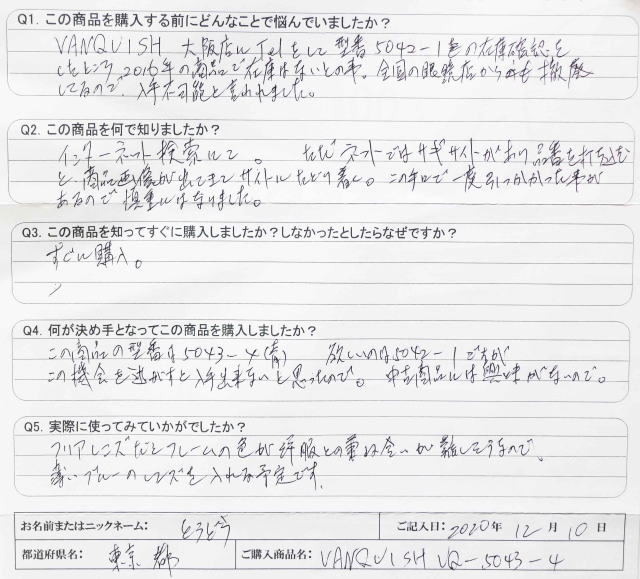 Q1. この商品を購入する前にどんなことで悩んでいましたか？
VANQUISH 大阪店にTelをして 型番5042-1番の在庫確認を
したところ、2016年の商品で在庫はないとの事。全国の眼鏡店からも撤廃
してるので、入手不可能と言われました。
Q2. この商品を何で知りましたか？
インターネット検索にて。 ただネットではサギサイトがあり品番を打ち込む
と、商品画像が出てきてサイトにたどり着く。この手口で一度引っかかった事が
あるので慎重にはなりました。
Q3. この商品を知ってすぐに購入しましたか？しなかったとしたらなぜですか？
すぐに購入。
Q4. 何が決め手となってこの商品を購入しましたか？
この商品の型番は5043-4(青) 欲しいのは5042-1ですが
この機会を逃がすと入手出来ないと思ったので。中古商品には興味がないので。
Q5. 実際に使ってみていかがでしたか？
クリアレンズだとフレームの色が洋服との重ね合いが難しそうなので、
薄いブルーのレンズを入れる予定です。
お名前またはニックネーム： とろとろ
ご記入日：2020年 12月 10日
都道府県名： 東京都
ご購入商品名： VANQUISH VQ-5043-4